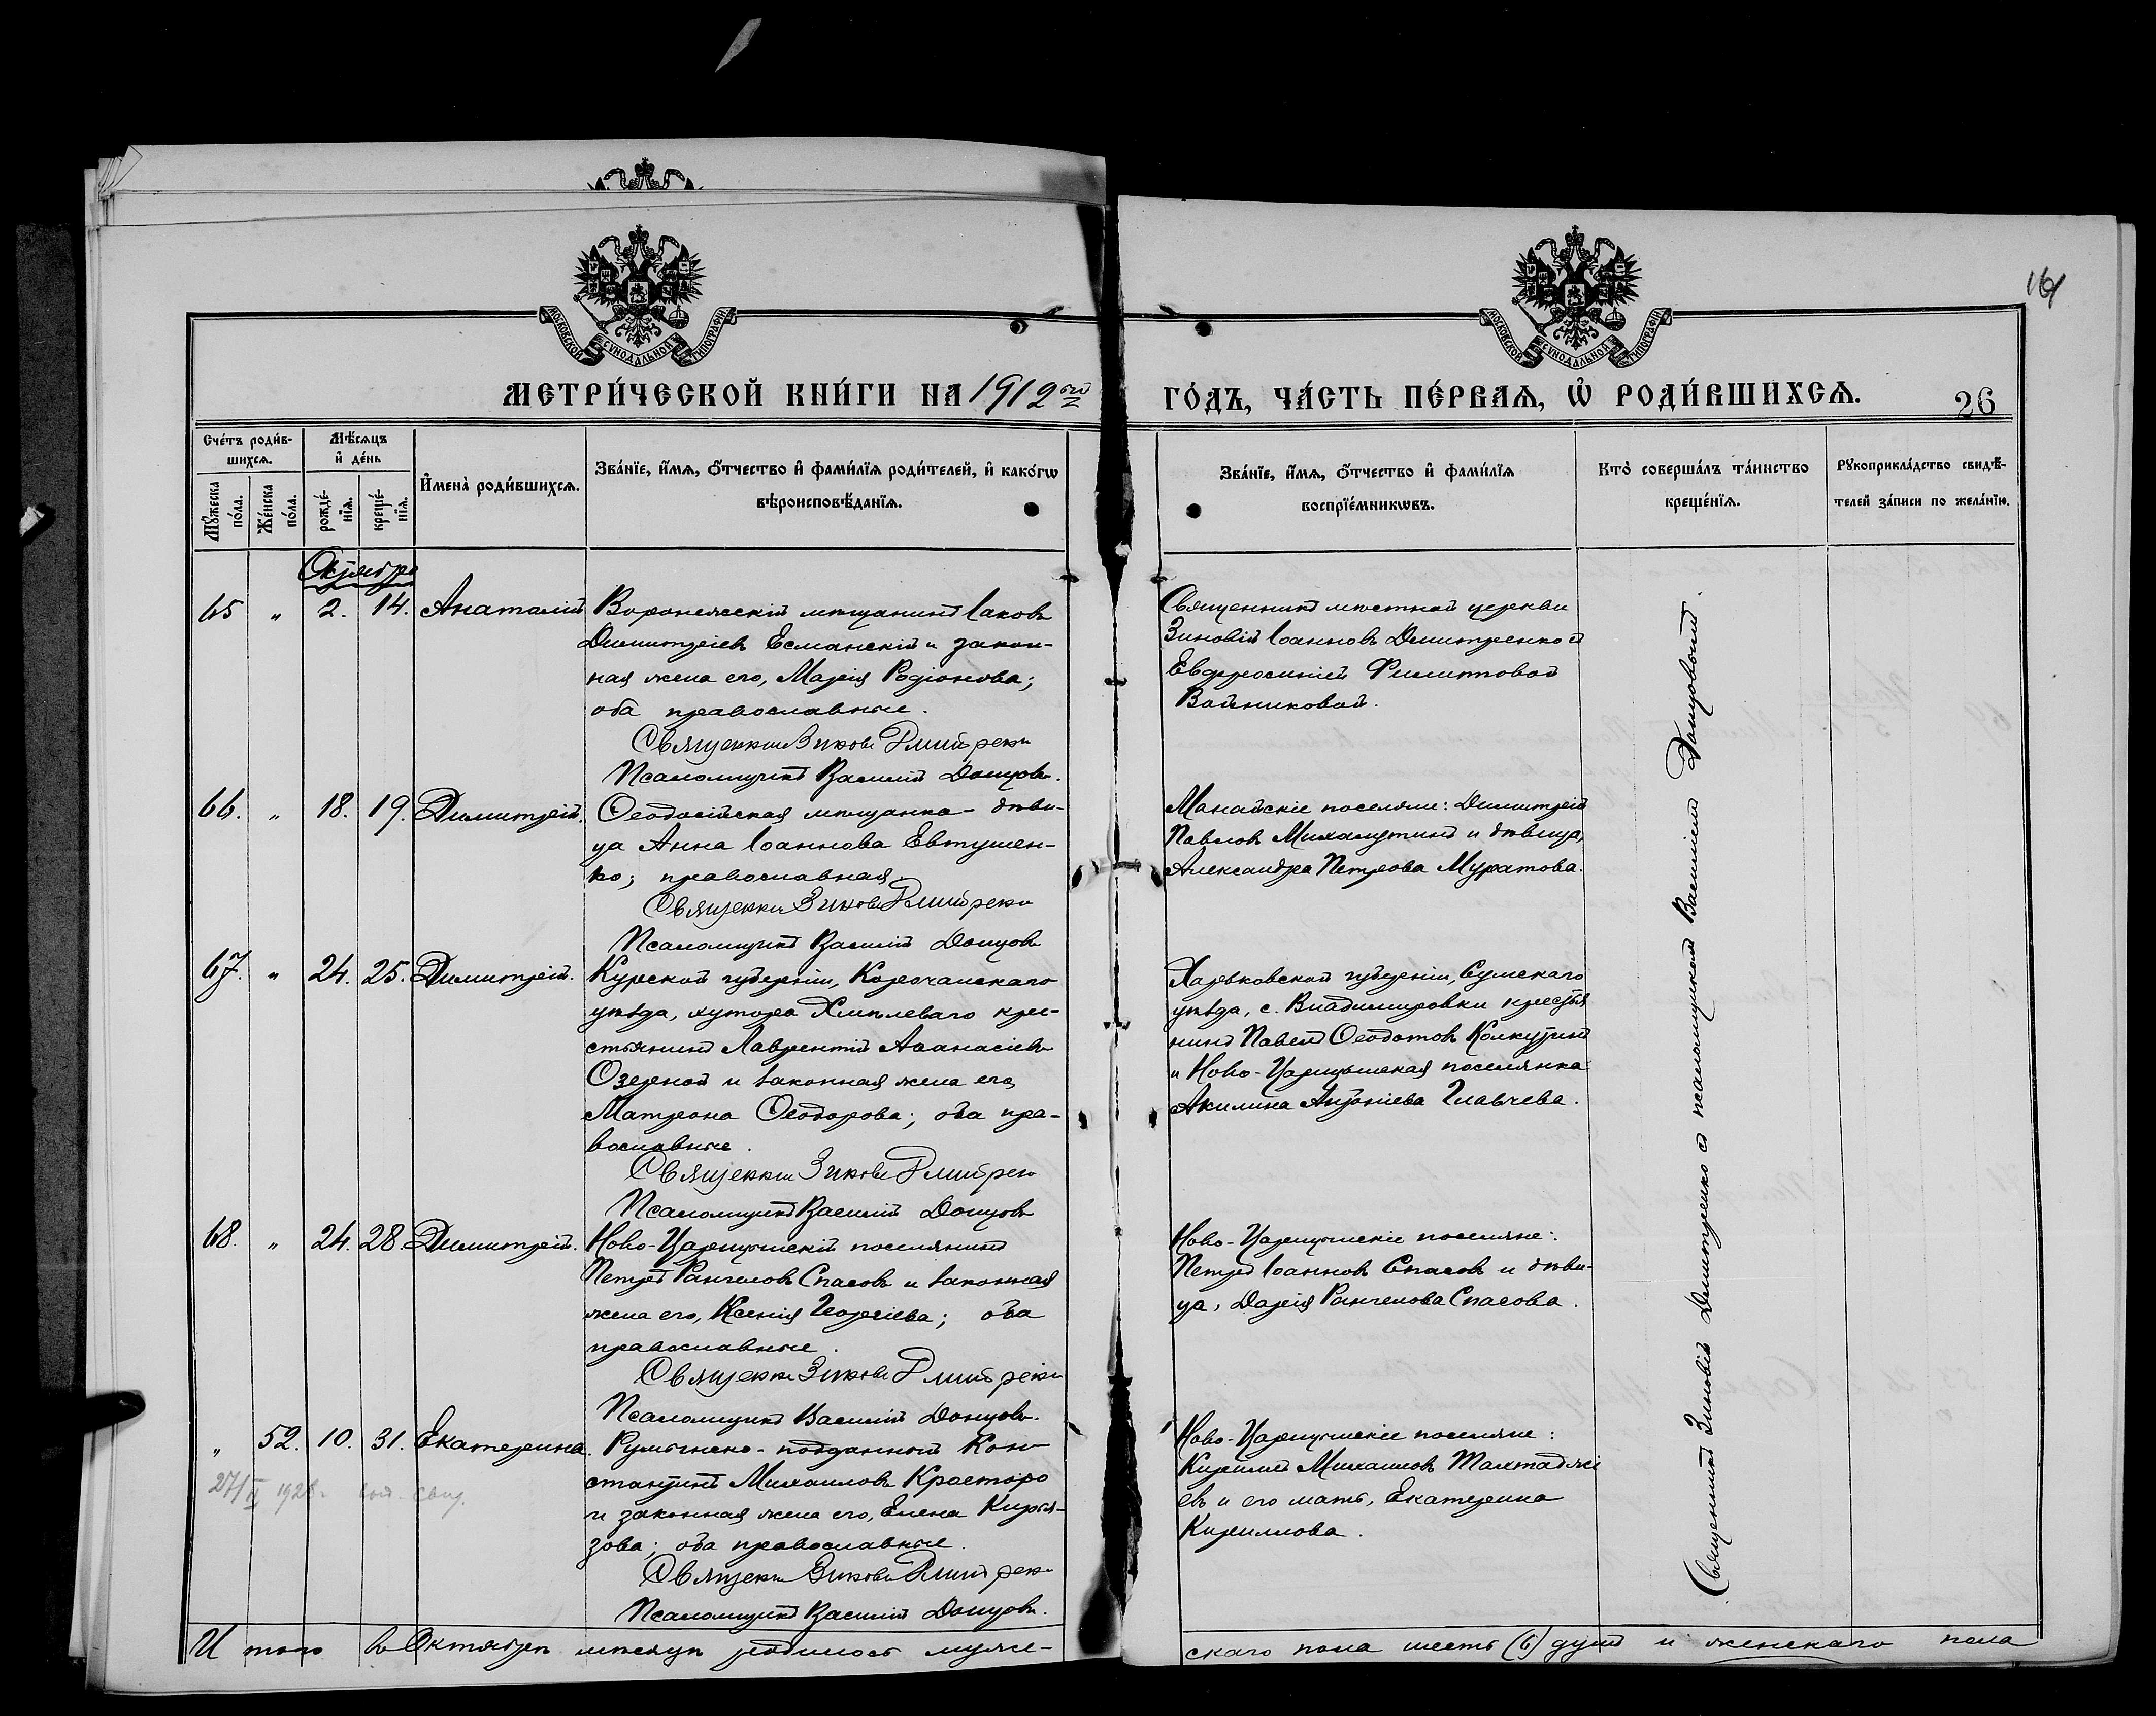 161
МОСКОВСКОЙ СУНОДАЛЬНОЙ ТИПОГРАФІИ
МОСКОВСКОЙ СУНОДАЛЬНОЙ ТИПОГРАФІИ
МЕТРИ́ЧЕСКОЙ КНИ́ГИ НА 1912 ый
ГО́ДЪ, ЧА́СТЬ ПЕ́РВАѦ, Ѡ҆ РОДИ́ВШИХСѦ.
26
Сче́тъ роди́в-
шихсѧ.
Мꙋ́жеска по́ла.
Же́нска по́ла.
Мѣ́сѧцъ
и҆ де́нь
рожде́-
нїѧ.
креще́-
нїѧ.
И҆мена̀ роди́вшихсѧ.
Зва́нїе, и҆́мѧ, ѻ҆́тчество и҆ фами́лїѧ роди́телей, и҆ како́гѡ
вѣроисповѣ́данїѧ.
Зва́нїе, и҆́мѧ, ѻ҆́тчество и҆ фами́лїѧ
воспрїе́мникѡвъ.
Кто̀ соверша́лъ та́инство
креще́нїѧ.
Рꙋкоприкла́дство свидѣ́-
телей за́писи по жела́нїю.
Октябрь
65 " 2. 14. Анатолій
Воронежскій мѣщанинъ Іаковъ
Димитріевъ Есманскій и закон-
ная жена его, Марія Родіонова;
оба православные.
Священникъ Зиновій Дмитренко
Псаломщикъ Василій Донцовъ.
Священникъ мѣстной церкви
Зиновій Іоанновъ Димитренко и
Евфросинія Филиппова
Войникова.
66. " 18. 19. Димитрій.
Ѳеодосійская мѣщанка - дѣви-
ца Анна Іоаннова Евтушен-
ко; православная.
Священникъ Зиновій Дмитренко
Псаломщикъ Василій Донцовъ
Манайскіе поселяне: Димитрій
Павловъ и дѣвица,
Александра Петрова Муратова.
67. " 24. 25. Димитрій.
Курской губерніи, Корочанскаго
уѣзда, хутора Хмелеваго крес-
стьянинъ Лаврентій Аѳанасіевъ
Озерной и законная жена его,
Матрона Ѳеодорова; оба пра-
вославные.
Священникъ Зиновій Дмитренко
Псаломщикъ Василій Донцовъ
Харьковской губерніи, Сумскаго
уѣзда, с. Владимировки крестья
нинъ Павелъ Ѳеодотовъ
и Ново-Царицынская поселянка
Акилина Антоніева Главчева.
68. " 24. 28. Димитрій.
Ново-Царицынскій поселянинъ
Петръ Рангеловъ Спасовъ и законная
жена его, Ксенія Георгіева; оба
православные.
Священникъ Зиновій Дмитренко
Псаломщикъ Василій Донцовъ.
Ново-Царицынскіе поселяне:
Петръ Іоанновъ Спасовъ и дѣви-
ца, Дарія Рангелова Спасова.
" 52. 10. 31. Екатерина.
Румынско-подданный Кон-
стантинъ Михаиловъ
и законная жена его, Елена Кирья-
зова; оба православные.
Священникъ Зиновій Дмитренко
Псаломщикъ Василій Донцовъ.
Ново-Царицынскіе поселяне:
Кириллъ Михаиловъ
евъ и его мать, Екатерина
Кириллова.
1928.
Священникъ Зиновій Димитренко съ псаломщикомъ Василіемъ Донцовымъ.
И того въ Октябрѣ мѣсяцѣ родилось муже-
скаго пола шесть (6) душъ и женскаго пола